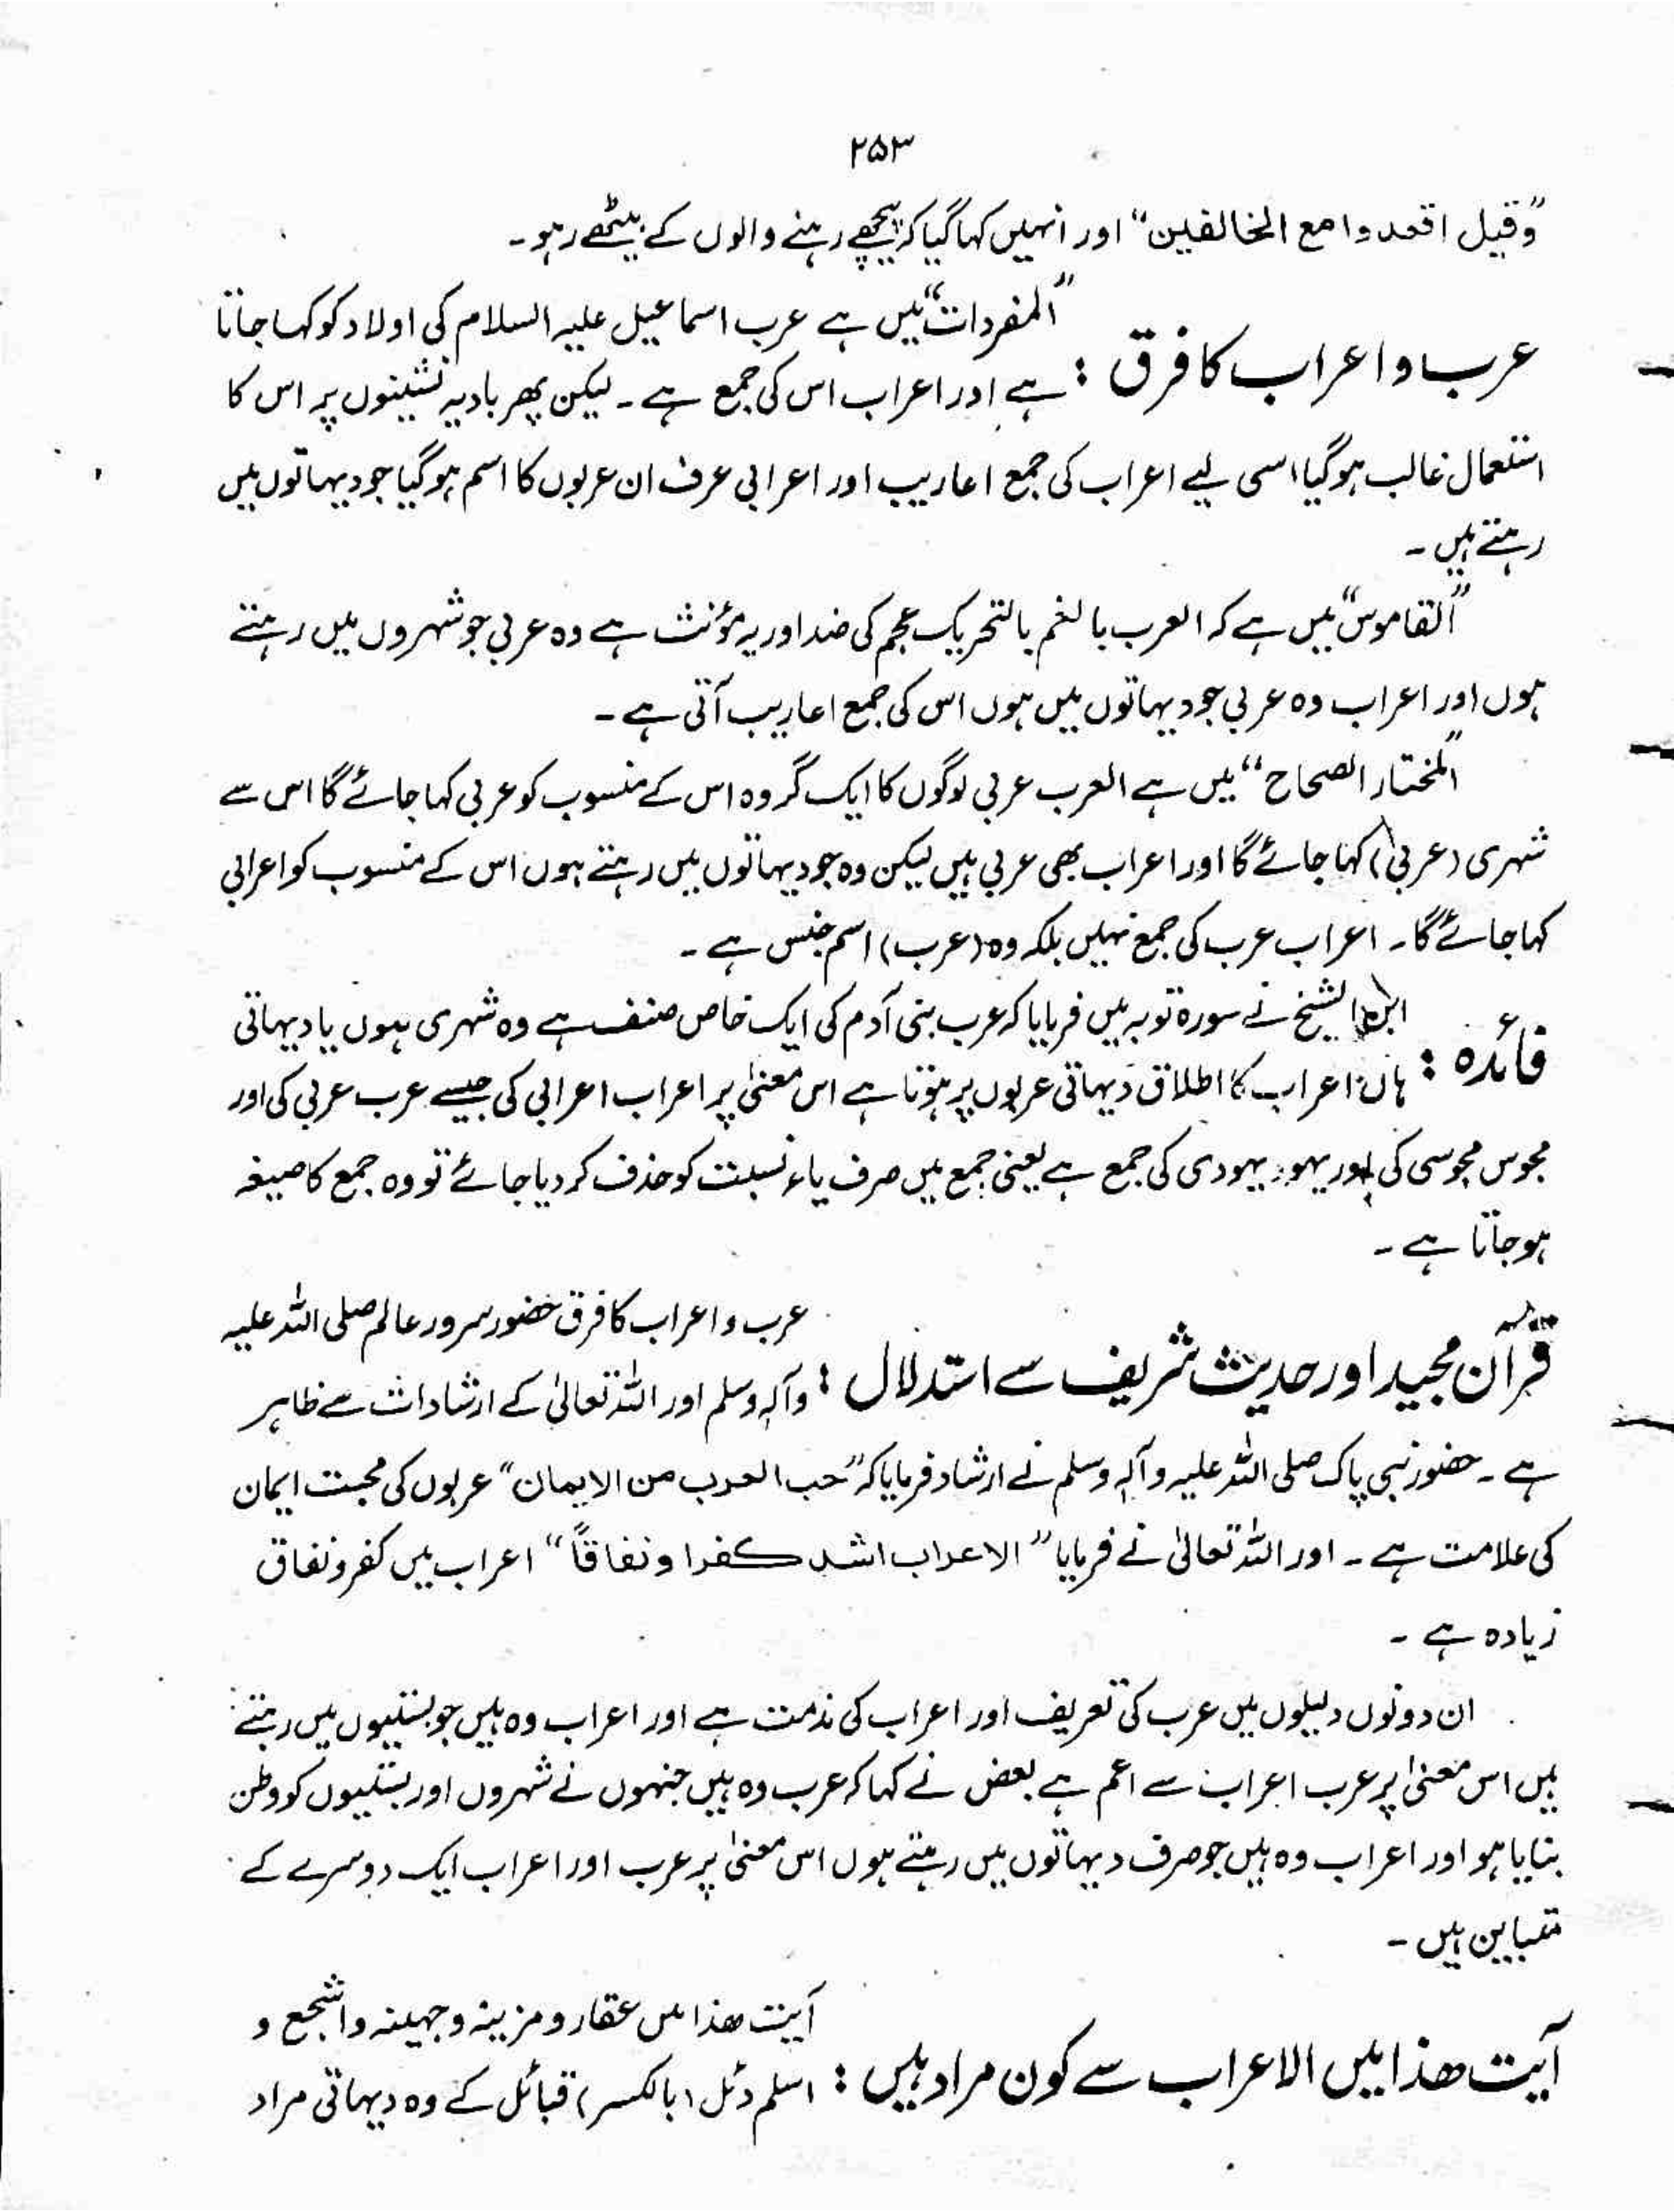 ۲۵۳
"وقیل اقعدوا مع الخالفین" اور انہیں کہا گیا کہ پیچھے رہنے والوں کے بیٹھے رہو۔
عرب و اعراب کا فرق :
"المفردات" میں ہے عرب اسماعیل علیہ السلام کی اولاد کو کہا جاتا
ہے اور اعراب اس کی جمع ہے۔ لیکن پھر بادیہ نشینوں پر اس کا
استعمال غالب ہوگیا اسی لیے اعراب کی جمع اعاریب اور اعرابی عرف ان عربوں کا اسم ہوگیا جو دیہاتوں میں
رہتے ہیں۔
"القاموس" میں ہے کہ العرب بالضم بالتحریک عجم کی ضد اور یہ مؤنث ہے وہ عربی جو شہروں میں رہتے
ہوں اور اعراب وہ عربی جو دیہاتوں میں ہوں اس کی جمع اعاریب آتی ہے۔
"المختار الصحاح" میں ہے العرب عربی لوگوں کا ایک گروہ اس کے منسوب کو عربی کہا جائے گا اس سے
شہری (عربی) کہا جائے گا اور اعراب بھی عربی ہیں لیکن وہ جو دیہاتوں میں رہتے ہوں اس کے منسوب کو اعرابی
کہا جائے گا۔ اعراب عرب کی جمع نہیں بلکہ وہ (عرب) اسم جنس ہے۔
فائدہ :
ابن الشیخ نے سورۃ توبہ میں فرمایا کہ عرب بنی آدم کی ایک خاص صنف ہے وہ شہری ہوں یا دیہاتی
ہاں اعراب کا اطلاق دیہاتی عربوں پر ہوتا ہے اس معنیٰ پر اعراب اعرابی کی جیسے عرب عربی کی اور
مجوس مجوسی کی اور یہود یہودی کی جمع ہے یعنی جمع میں صرف یاء نسبت کو حذف کر دیا جائے تو وہ جمع کا صیغہ
ہو جاتا ہے۔
قرآن مجید اور حدیث شریف سے استدلال :
عرب و اعراب کا فرق حضور سرور عالم صلی اللہ علیہ
وآلہ وسلم اور اللہ تعالیٰ کے ارشادات سے ظاہر
ہے۔ حضور نبی پاک صلی اللہ علیہ وآلہ وسلم نے ارشاد فرمایا کہ "حب العرب من الایمان" عربوں کی محبت ایمان
کی علامت ہے۔ اور اللہ تعالیٰ نے فرمایا "الاعراب اشد کفرا و نفاقاً" اعراب میں کفر و نفاق
زیادہ ہے۔
ان دونوں دلیلوں میں عرب کی تعریف اور اعراب کی مذمت ہے اور اعراب وہ ہیں جو بستیوں میں رہتے
ہیں اس معنیٰ پر عرب اعراب سے اعم ہے بعض نے کہا کہ عرب وہ ہیں جنہوں نے شہروں اور بستیوں کو وطن
بنایا ہو اور اعراب وہ ہیں جو صرف دیہاتوں میں رہتے ہوں اس معنیٰ پر عرب اور اعراب ایک دوسرے کے
متباین ہیں۔
آیت ھذا میں الاعراب سے کون مراد ہیں :
آیت ھذا میں عقار و مزینہ و جہینہ و اشجع و
اسلم دئل (بالکسر) قبائل کے وہ دیہاتی مراد